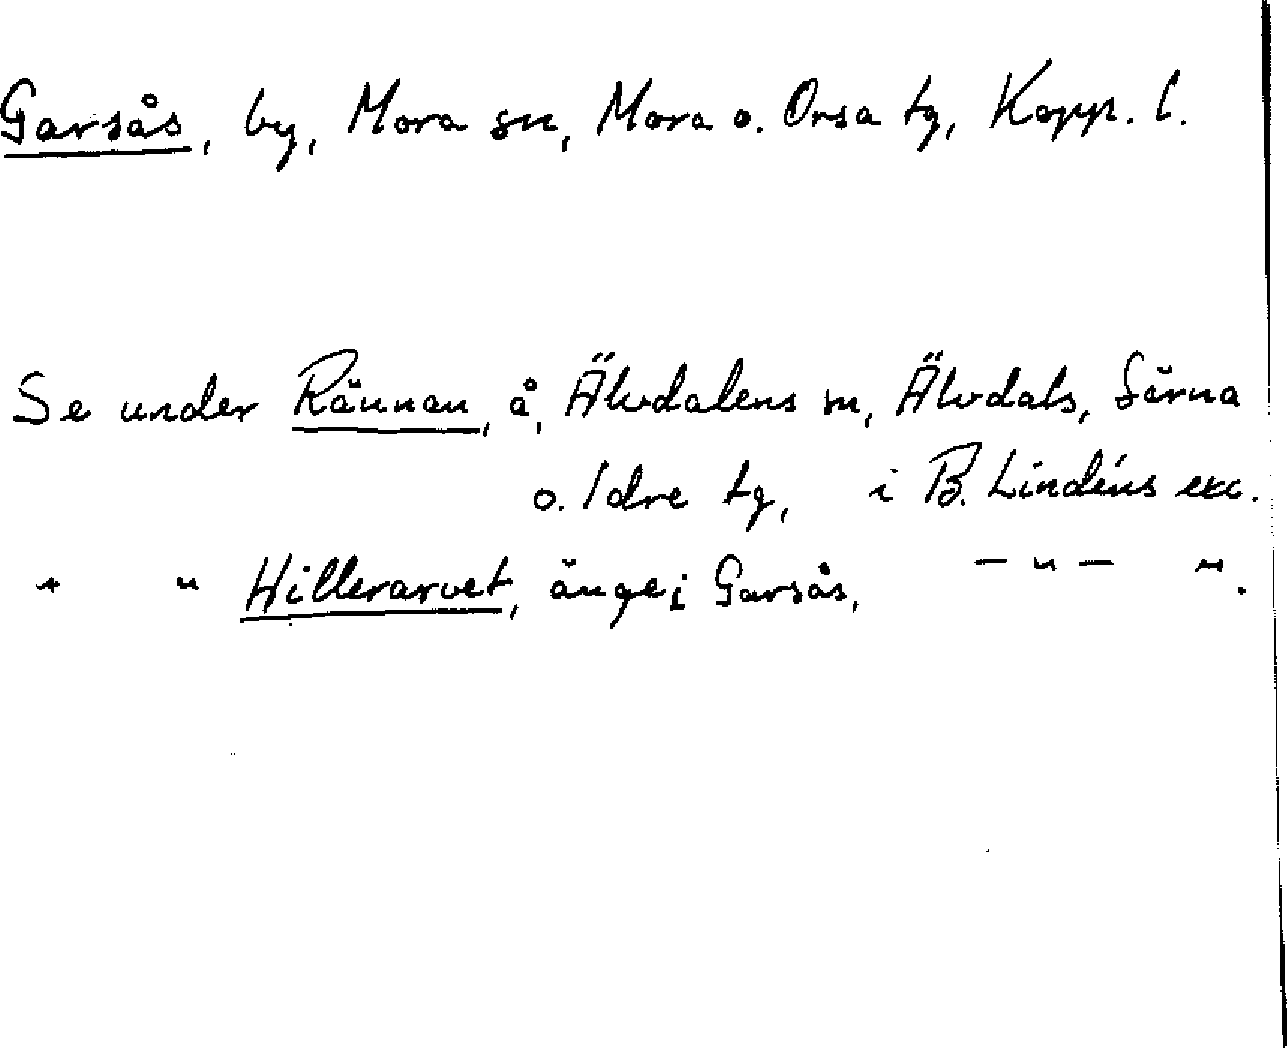 Garsås, by, Mora sn, Mora o. Orsa tg, Kopp. l.
Se under Rännan, å, Älvdalens sn, Älvdals, Särna
o. Idre tg, i B. Lindéns exc.
" " Hillerarvet, änge i Garsås, – " – ".